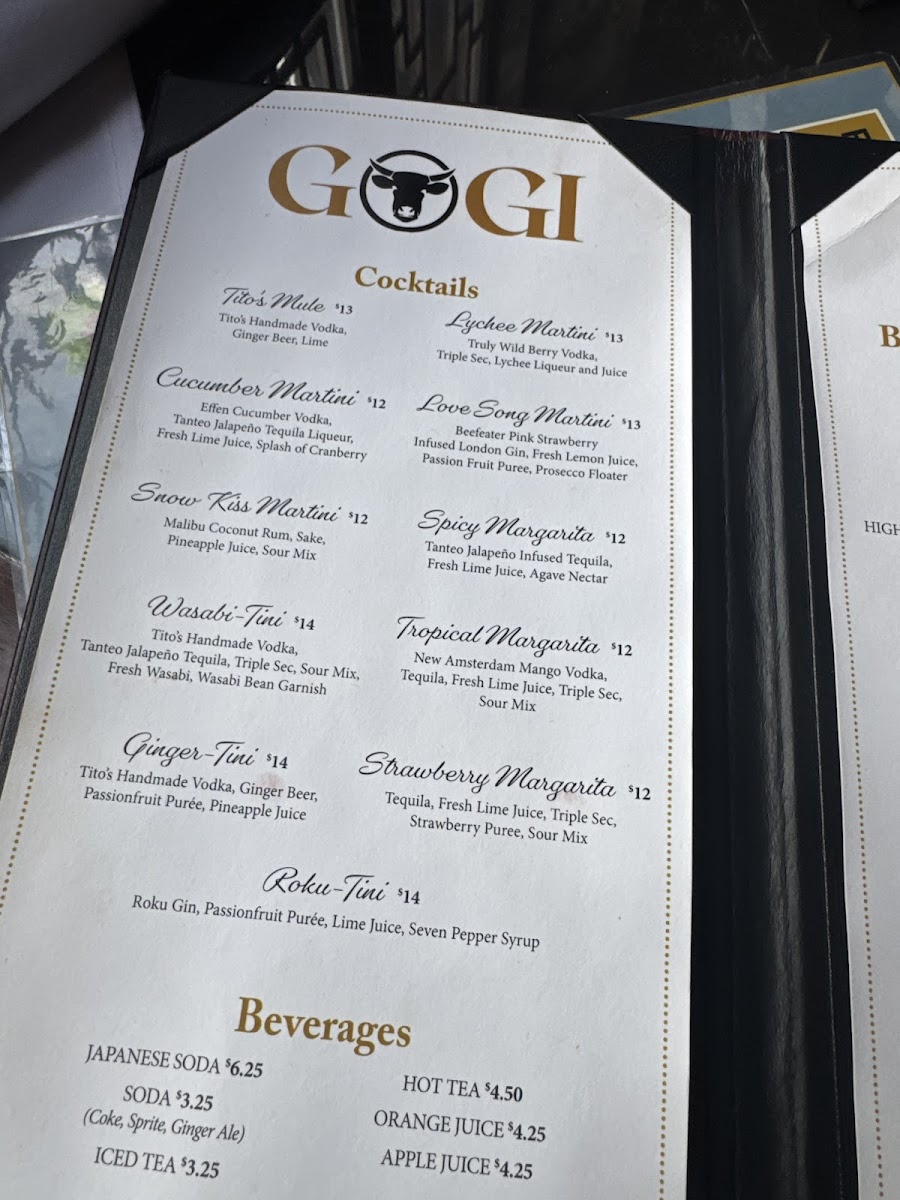 GOGI
Cocktails
Tito's Mule $13
Tito's Handmade Vodka,
Ginger Beer, Lime
Lychee Martini $13
Truly Wild Berry Vodka,
Triple Sec, Lychee Liqueur and Juice
Cucumber Martini $12
Effen Cucumber Vodka,
Tanteo Jalapeño Tequila Liqueur,
Fresh Lime Juice, Splash of Cranberry
Love Song Martini $13
Beefeater Pink Strawberry
Infused London Gin, Fresh Lemon Juice,
Passion Fruit Puree, Prosecco Floater
Snow Kiss Martini $12
Malibu Coconut Rum, Sake,
Pineapple Juice, Sour Mix
Spicy Margarita $12
Tanteo Jalapeño Infused Tequila,
Fresh Lime Juice, Agave Nectar
Wasabi-Tini $14
Tito's Handmade Vodka,
Tanteo Jalapeño Tequila, Triple Sec, Sour Mix,
Fresh Wasabi, Wasabi Bean Garnish
Tropical Margarita $12
New Amsterdam Mango Vodka,
Tequila, Fresh Lime Juice, Triple Sec,
Sour Mix
Ginger-Tini $14
Tito's Handmade Vodka, Ginger Beer,
Passionfruit Purée, Pineapple Juice
Strawberry Margarita $12
Tequila, Fresh Lime Juice, Triple Sec,
Strawberry Puree, Sour Mix
Roku-Tini $14
Roku Gin, Passionfruit Purée, Lime Juice, Seven Pepper Syrup
Beverages
JAPANESE SODA $6.25
SODA $3.25
(Coke, Sprite, Ginger Ale)
ICED TEA $3.25
HOT TEA $4.50
ORANGE JUICE $4.25
APPLE JUICE $4.25
B
HIGH